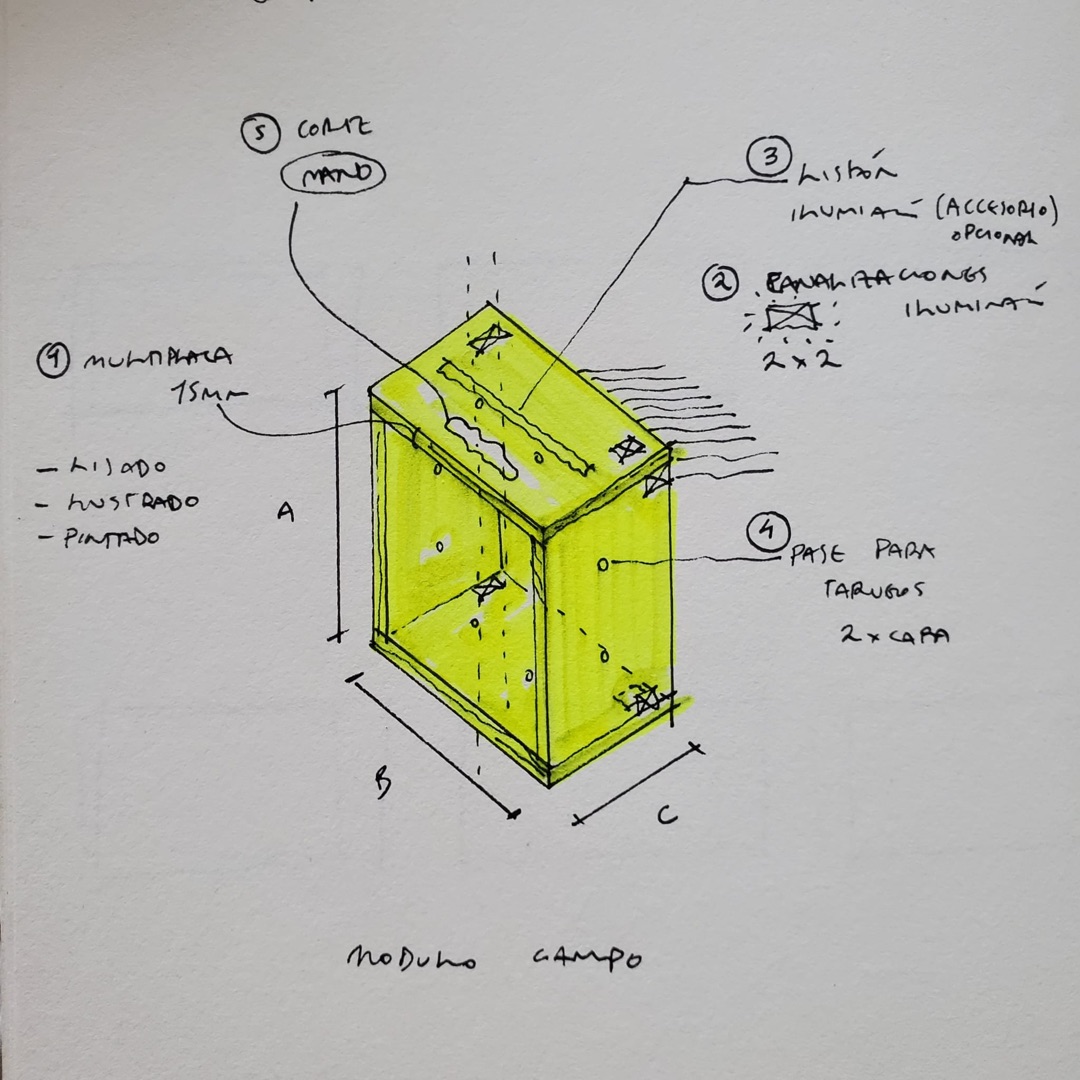 5 CORTE
MANO
3 LISTÓN
ILUMIA (ACCESORIO)
OPCIONAL
2 CANALIZACIONES
ILUMINA
2 x 2
1 MULTIPLACA
15MM
- LIJADO
- LUSTRADO
- PINTADO
A
4 PASE PARA
TARUGOS
2 x CARA
B
C
MODULO CAMPO